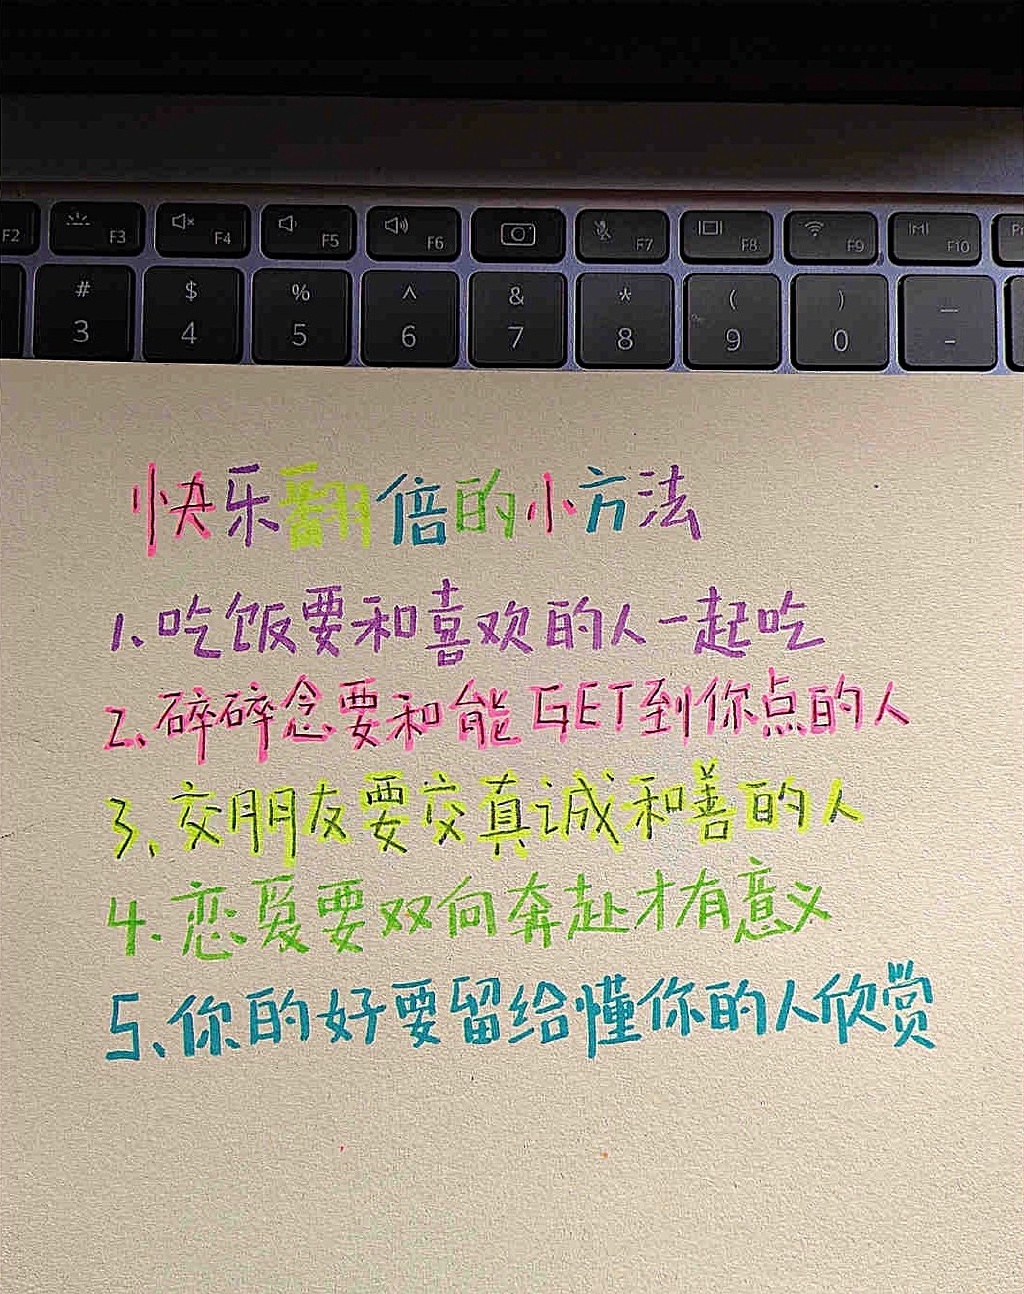 F2 F3 F4 F5 F6 F7 F8 F9 F10
# $ % ^ & * ( ) —
3 4 5 6 7 8 9 0 -
快乐翻倍的小方法
1、吃饭要和喜欢的人一起吃
2、碎碎念要和能GET到你点的人
3、交朋友要交真诚和善的人
4.恋爱要双向奔赴才有意义
5、你的好要留给懂你的人欣赏